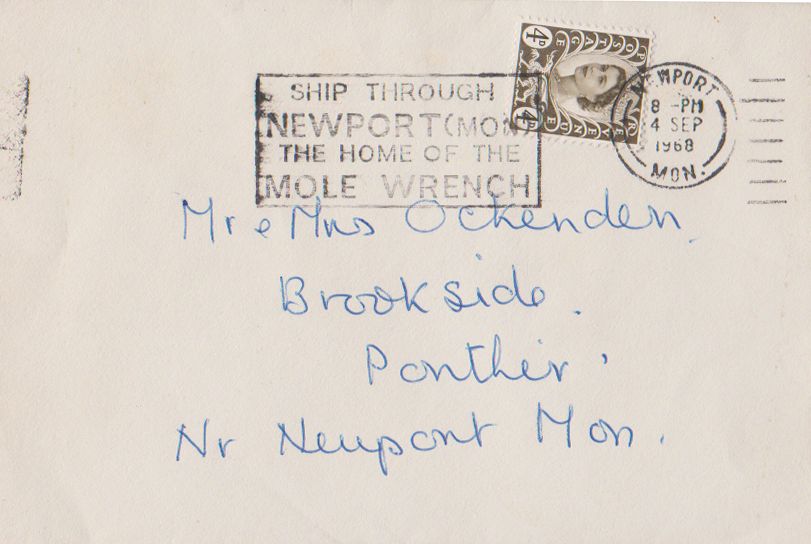 SHIP THROUGH
NEWPORT (MON)
THE HOME OF THE
MOLE WRENCH
POSTAGE
REVENUE
4D
4D
NEWPORT
8 - PM
4 SEP
1968
MON.
Mr & Mrs Ockenden.
Brookside.
Ponthir.
Nr Newport Mon.